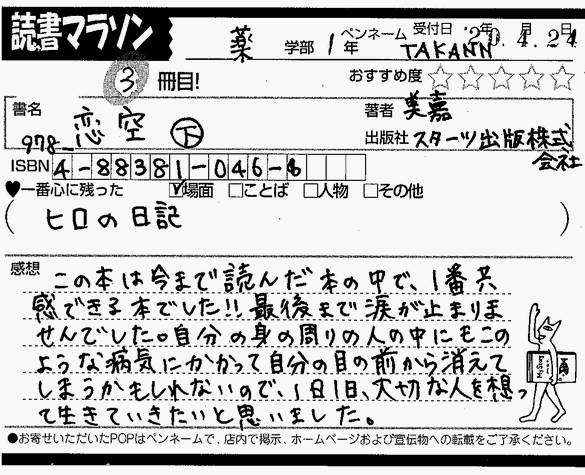 読書マラソン
薬 学部 1年 ペンネーム TAKANN 受付日 '20年4月24日
③冊目! おすすめ度☆☆☆☆☆
書名 恋空 下
著者 美嘉
出版社 スターツ出版株式会社
978-
ISBN 4-88381-046-6
♥一番心に残った ☑場面 □ことば □人物 □その他
(ヒロの日記)
感想
この本は今まで読んだ本の中で、1番共
感できる本でした!!最後まで涙が止まりま
せんでした。自分の身の周りの人の中にもこの
ような病気にかかって自分の目の前から消えて
しまうかもしれないので、1日1日、大切な人を想っ
て生きていきたいと思いました。
●お寄せいただいたPOPはペンネームで、店内で掲示、ホームページおよび宣伝物への転載をご了承ください。